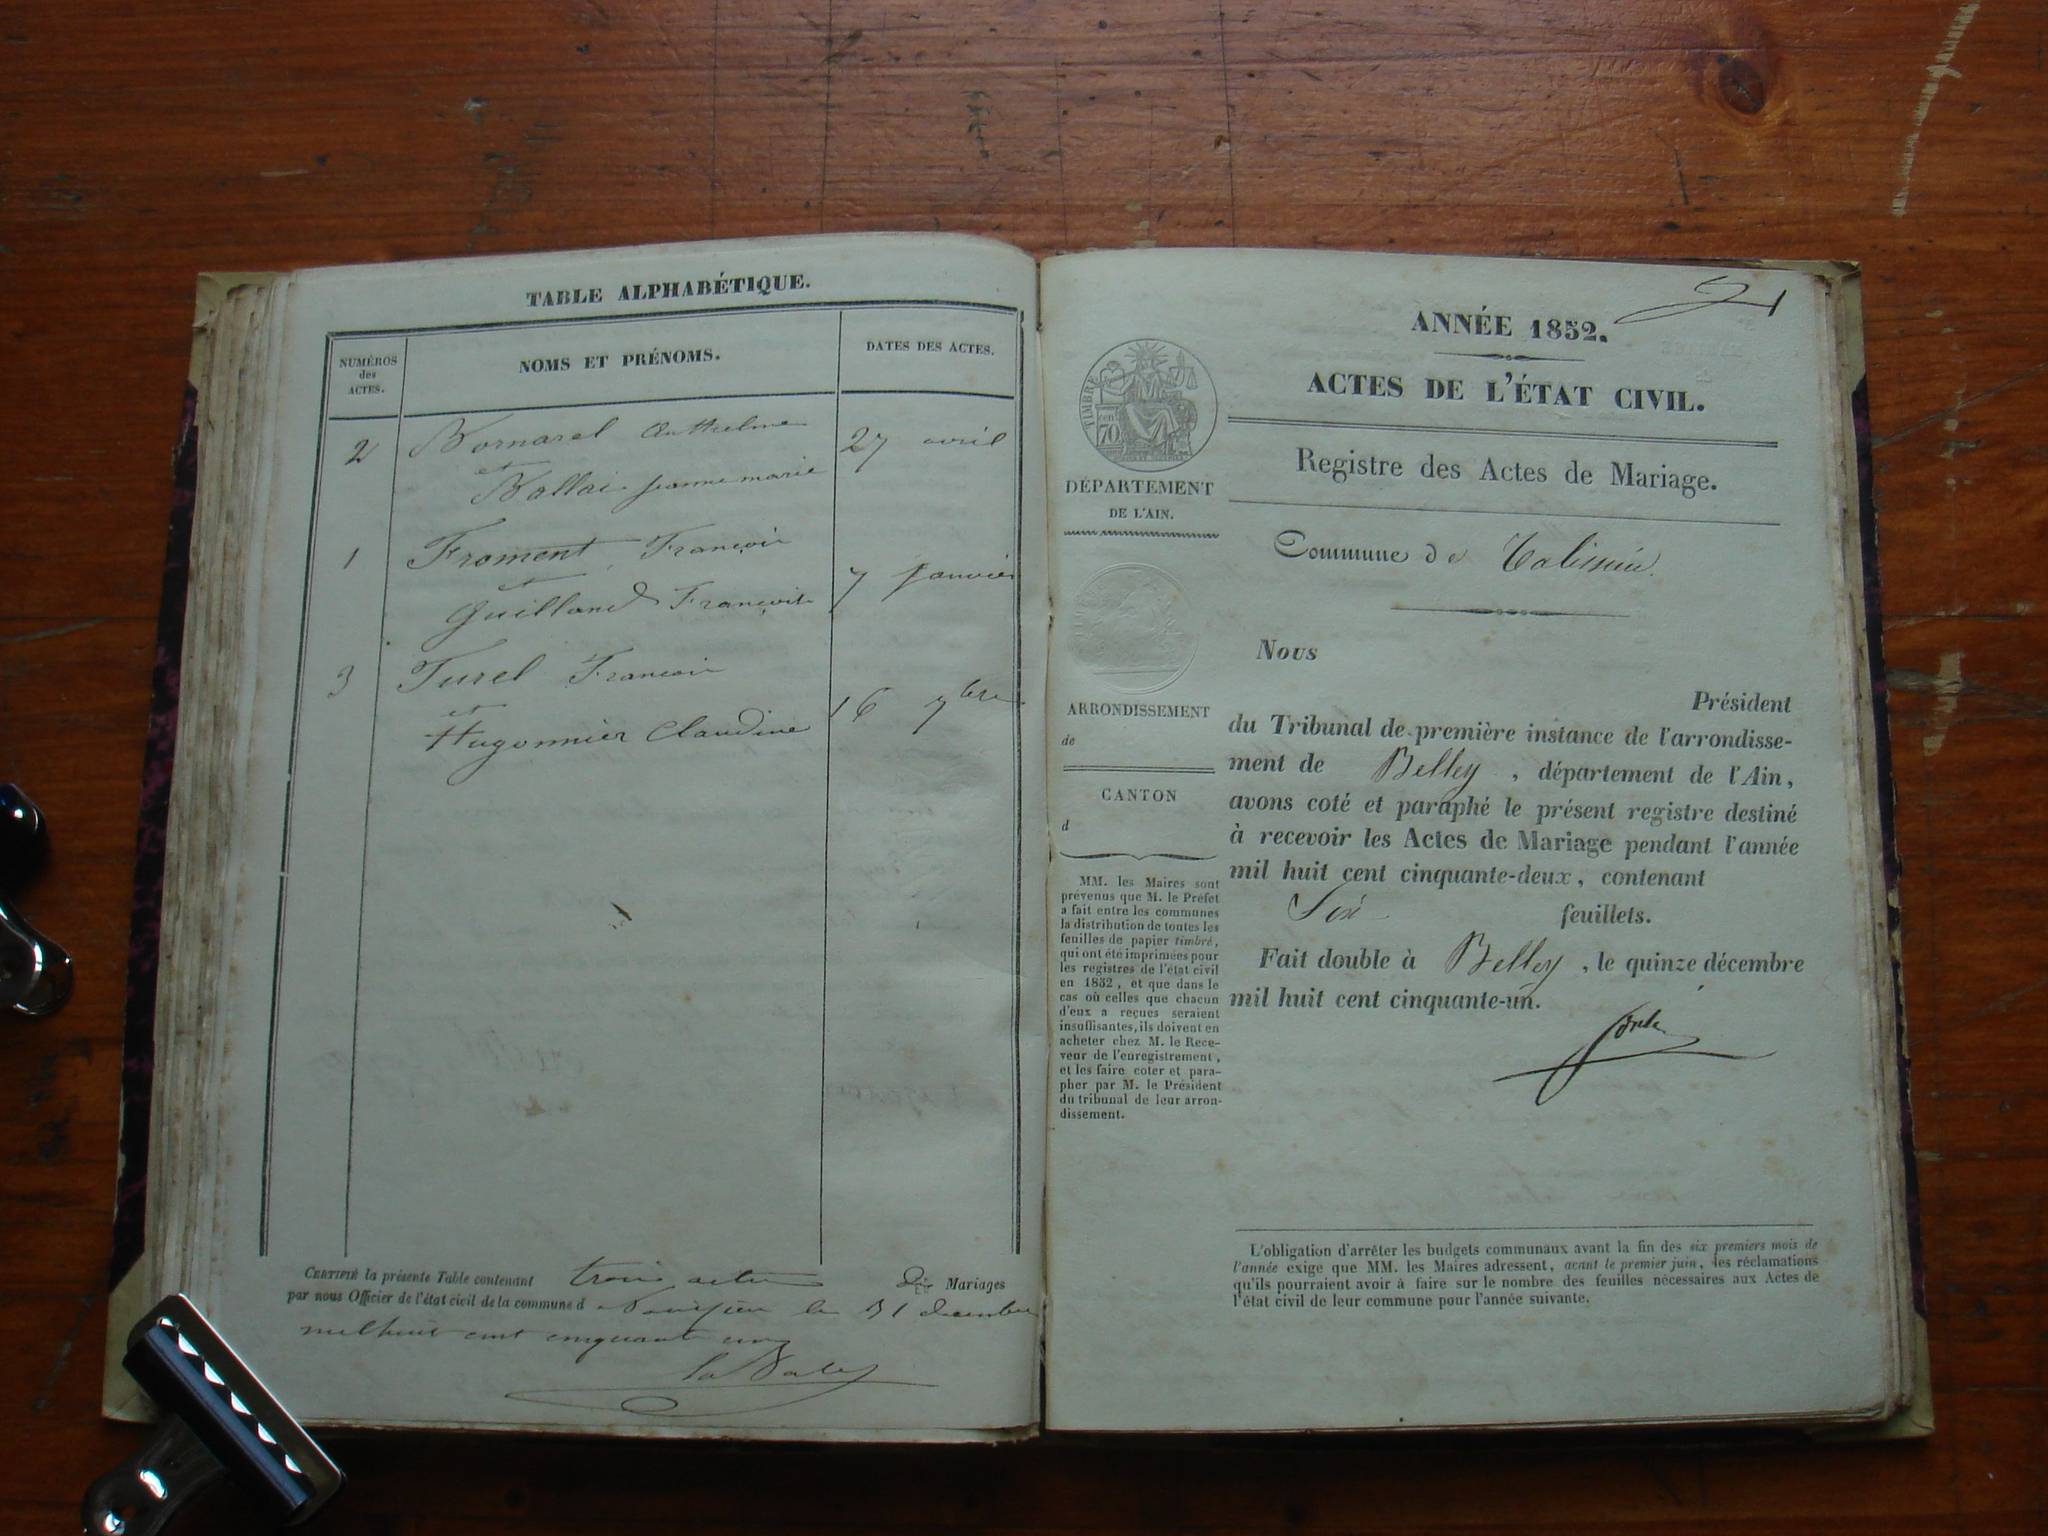 TABLE ALPHABÉTIQUE.
NUMÉROS
des
ACTES.
NOMS ET PRÉNOMS.
DATES DES ACTES.
2 Bornarel Anthelme 27 avril
et
Ballai jeanne marie
1 Froment François
et
Guilland Françoise 7 janvier
3 Turel François
et
Hugonnier Claudine 16 7bre
CERTIFIÉ la présente Table contenant trois actes de Mariages
par nous Officier de l'état civil de la commune d le 31 decembre
mil huit cent cinquante un
ANNÉE 1852.
ACTES DE L'ÉTAT CIVIL.
Registre des Actes de Mariage.
Commune de Talissieu.
TIMBRE
cen
70
DÉPARTEMENT
DE L'AIN.
ARRONDISSEMENT
de
CANTON
d
MM. les Maires sont
prévenus que M. le Préfet
a fait entre les communes
la distribution de toutes les
feuilles de papier timbré,
qui ont été imprimées pour
les registres de l'état civil
en 1852, et que dans le
cas où celles que chacun
d'eux a reçues seraient
insuffisantes, ils doivent en
acheter chez M. le Rece-
veur de l'enregistrement,
et les faire coter et para-
pher par M. le Président
du tribunal de leur arron-
dissement.
Nous
Président
du Tribunal de première instance de l'arrondisse-
ment de Belley, département de l'Ain,
avons coté et paraphé le présent registre destiné
à recevoir les Actes de Mariage pendant l'année
mil huit cent cinquante-deux, contenant
Six feuillets.
Fait double à Belley, le quinze décembre
mil huit cent cinquante-un.
L'obligation d'arrêter les budgets communaux avant la fin des six premiers mois de
l'année exige que MM. les Maires adressent, avant le premier juin, les réclamations
qu'ils pourraient avoir à faire sur le nombre des feuilles nécessaires aux Actes de
l'état civil de leur commune pour l'année suivante.